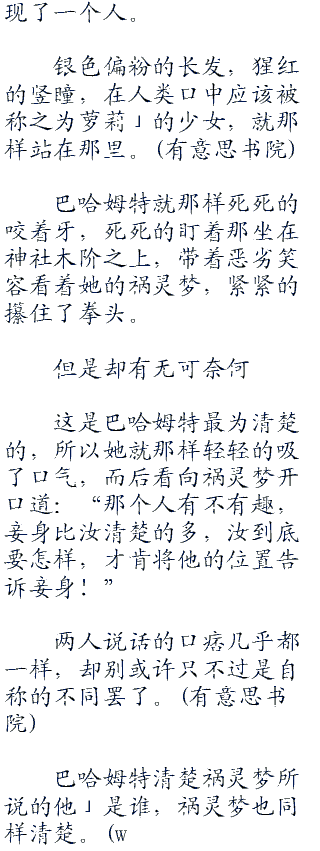 现了一个人。
银色偏粉的长发，猩红
的竖瞳，在人类口中应该被
称之为萝莉」的少女，就那
样站在那里。(有意思书院)
巴哈姆特就那样死死的
咬着牙，死死的盯着那坐在
神社木阶之上，带着恶劣笑
容看着她的祸灵梦，紧紧的
攥住了拳头。
但是却有无可奈何
这是巴哈姆特最为清楚
的，所以她就那样轻轻的吸
了口气，而后看向祸灵梦开
口道：“那个人有不有趣，
妾身比汝清楚的多，汝到底
要怎样，才肯将他的位置告
诉妾身！”
两人说话的口痞几乎都
一样，却别或许只不过是自
称的不同罢了。(有意思书
院)
巴哈姆特清楚祸灵梦所
说的他」是谁，祸灵梦也同
样清楚。(w